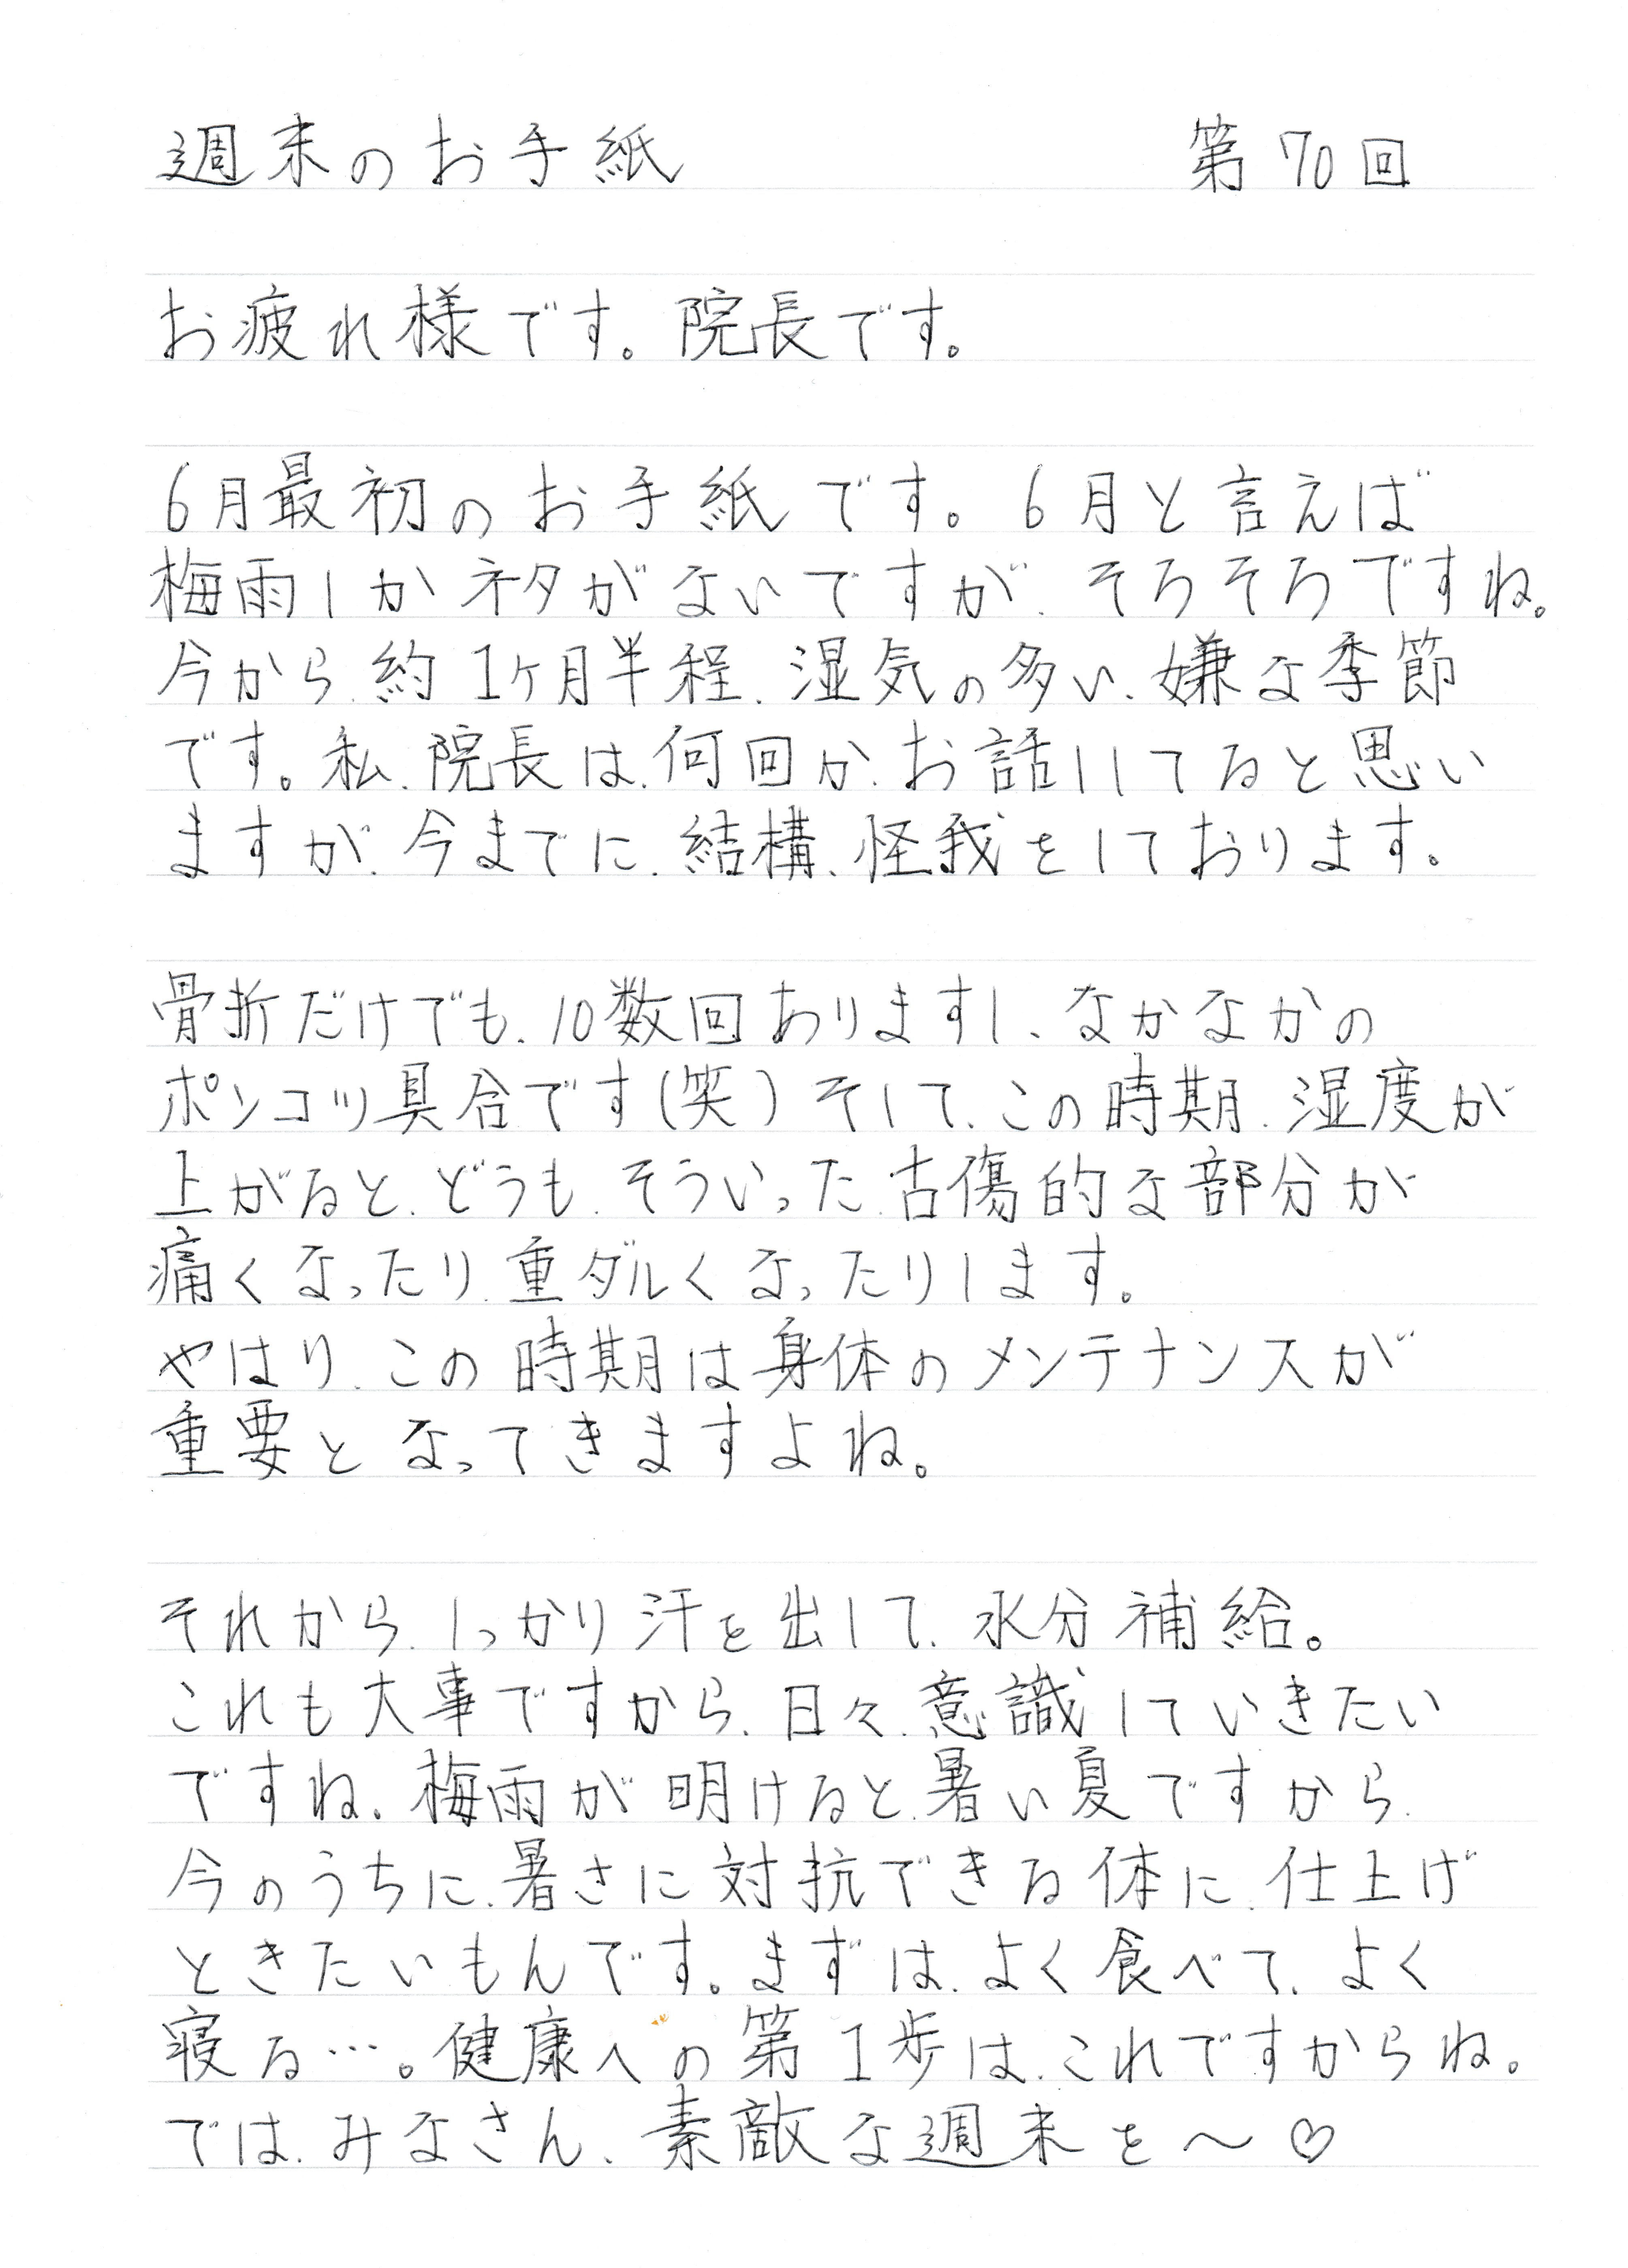 週末のお手紙 第70回
お疲れ様です。院長です。
6月最初のお手紙です。6月と言えば
梅雨しかネタがないですが、そろそろですね。
今から、約1ヶ月半程、湿気の多い、嫌な季節
です。私、院長は、何回か、お話ししてると思い
ますが、今までに、結構、怪我をしております。
骨折だけでも、10数回ありますし、なかなかの
ポンコツ具合です(笑)そして、この時期、湿度が
上がると、どうも、そういった、古傷的な部分が
痛くなったり、重ダルくなったりします。
やはり、この時期は身体のメンテナンスが
重要となってきますよね。
それから、しっかり汗を出して、水分補給。
これも大事ですから、日々、意識していきたい
ですね。梅雨が明けると、暑い夏ですから、
今のうちに、暑さに対抗できる体に、仕上げ
ときたいもんです。まずは、よく食べて、よく
寝る…。健康への第1歩は、これですからね。
では、みなさん、素敵な週末を〜♡